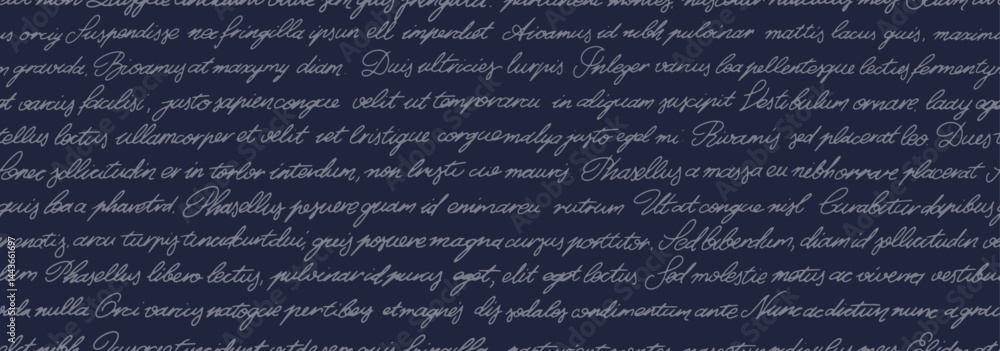 us orci Suspendisse nec fringilla ipsum ell imperdiet Aivamus id nibh pulvinar mattis lacus quis, maximu
n gravida. Bivamus at maxymy diam. Duis ultricies lurpis Inleger varius loa pellentesque lectus fermenty
at varius facilisi, justo sapien congue velit ut temporarcu in aliquam suscipit Vestibulum ornare, lady ege
tellus lactus ullamcorper et velit vet tristique congue malya justo eget mi. Rivamis sed placerat leo. Dues
Donec sollicitudin er in tortor interdum, non tristi cue mauris. Phasellus a massa eu nebh ornare placerat
quis loa a pharetrd. Phasellus posuere quam id enimarcu rutrum Ut at congue nisl Curabitur dapibus,
natis, arcu turpis tincidunt dui, quis posuere magna cursus porttitor. Sed bibendum, diam id sollicitudin
um Phasellus libero lectus, pulvinar id purus eget, elit eget lectus Sed molestie metus ac viverra vestibu
da nulla Orci varius natoque pentibes et magnis dis sodales condimentum ante Nunc ac dictum nunc a grav
Adobe Stock | #1443661697